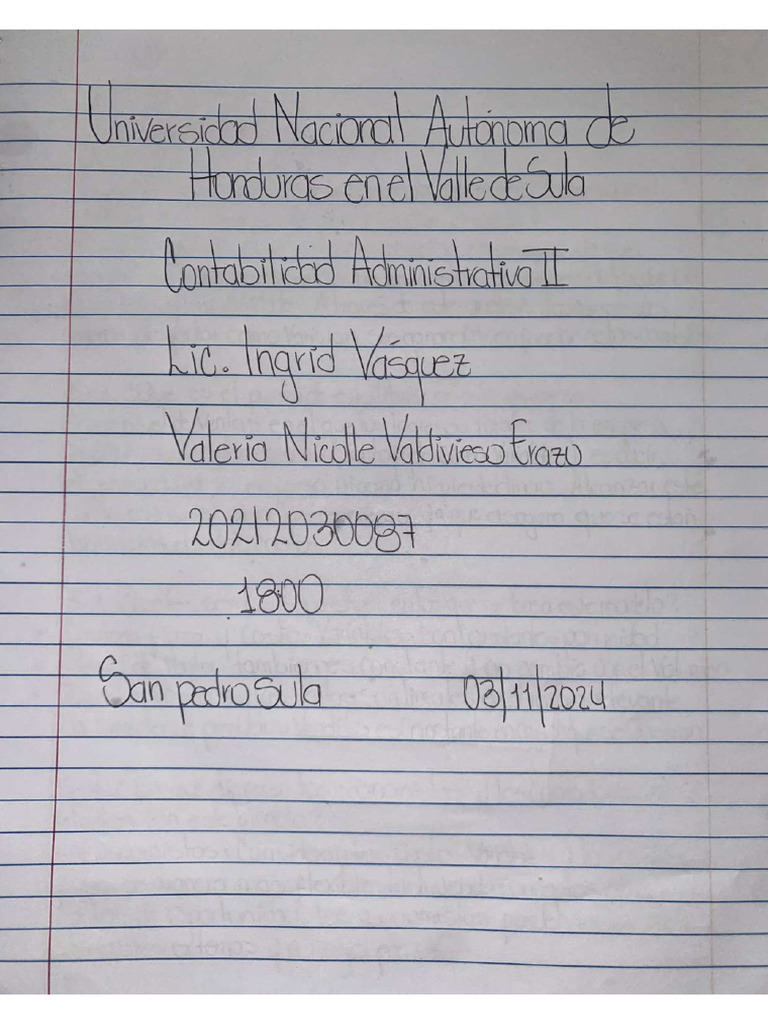 Universidad Nacional Autónoma de
Honduras en el Valle de Sula
Contabilidad Administrativa II
Lic. Ingrid Vásquez
Valeria Nicolle Valdivieso Erazo
20212030087
1800
San pedro Sula 03/11/2024